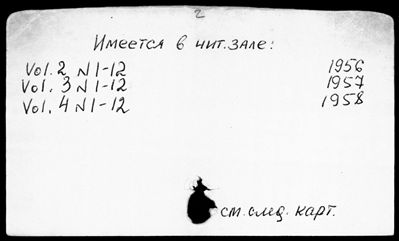 2
Имеется в чит. зале:
Vol. 2 N 1-12 1956
Vol. 3 N 1-12 1957
Vol. 4 N 1-12 1958
см. след. карт.